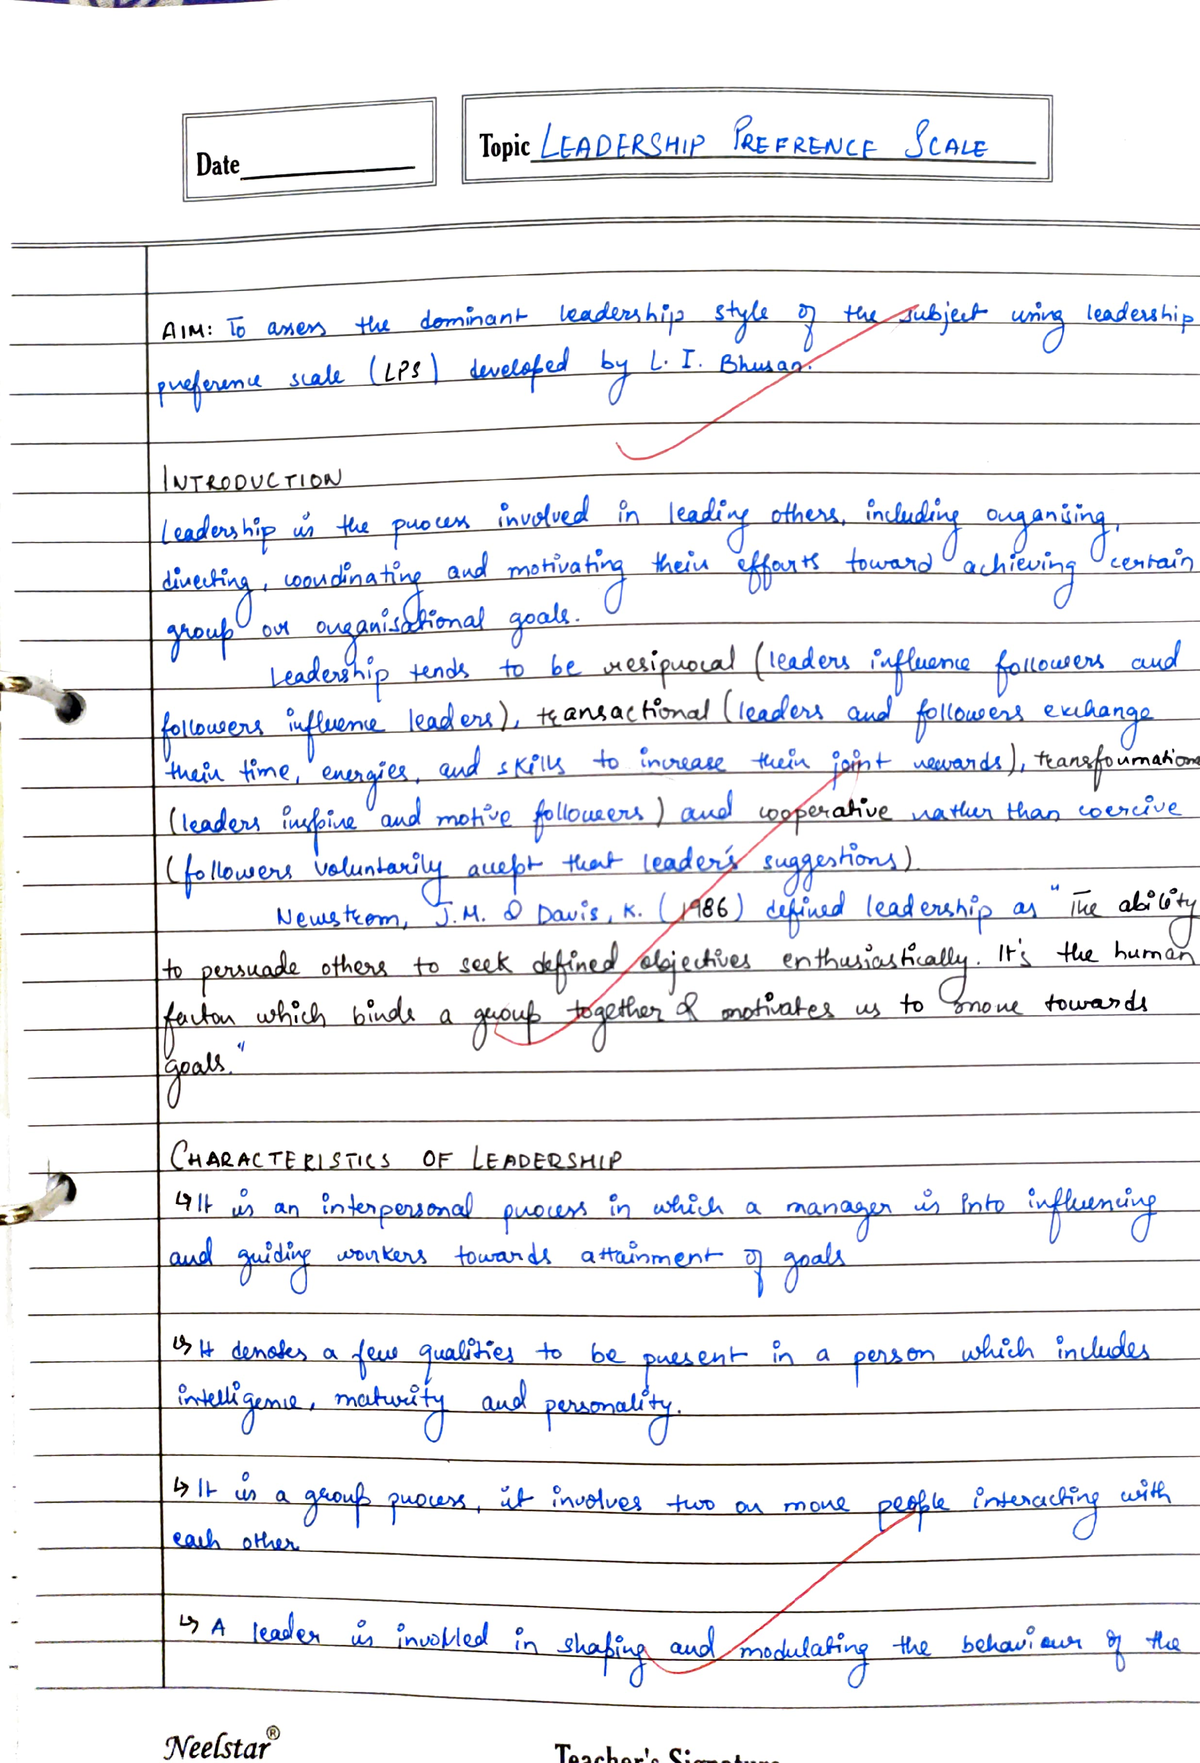 Date
Topic LEADERSHIP PREFRENCE SCALE
AIM: To assess the dominant leadership style of the subject using leadership
preference scale (LPS) developed by L. I. Bhusan.
INTRODUCTION
Leadership is the process involved in leading others, including organising,
directing, coordinating and motivating their efforts toward achieving certain
group or organisational goals.
Leadership tends to be resiprocal (leaders influence followers and
followers influence leaders), transactional (leaders and followers exchange
their time, energies, and skills to increase their joint rewards), transformationa
(leaders inspire and motive followers) and cooperative rather than coercive
(followers voluntarily accept that leader's suggestions).
Newstrom, J.M. & Davis, K. (1986) defined leadership as "The ability
to persuade others to seek defined objectives enthusiastically. It's the human
factor which binds a group together & motivates us to move towards
goals."
CHARACTERISTICS OF LEADERSHIP
↳ It is an interpersonal process in which a manager is into influencing
and guiding workers towards attainment of goals
↳ It denotes a few qualities to be present in a person which includes
intelligence, maturity and personality.
↳ It is a group process, it involves two or more people interacting with
each other
↳ A leader is involved in shaping and modulating the behaviour of the
Neelstar®
Teacher's Signature